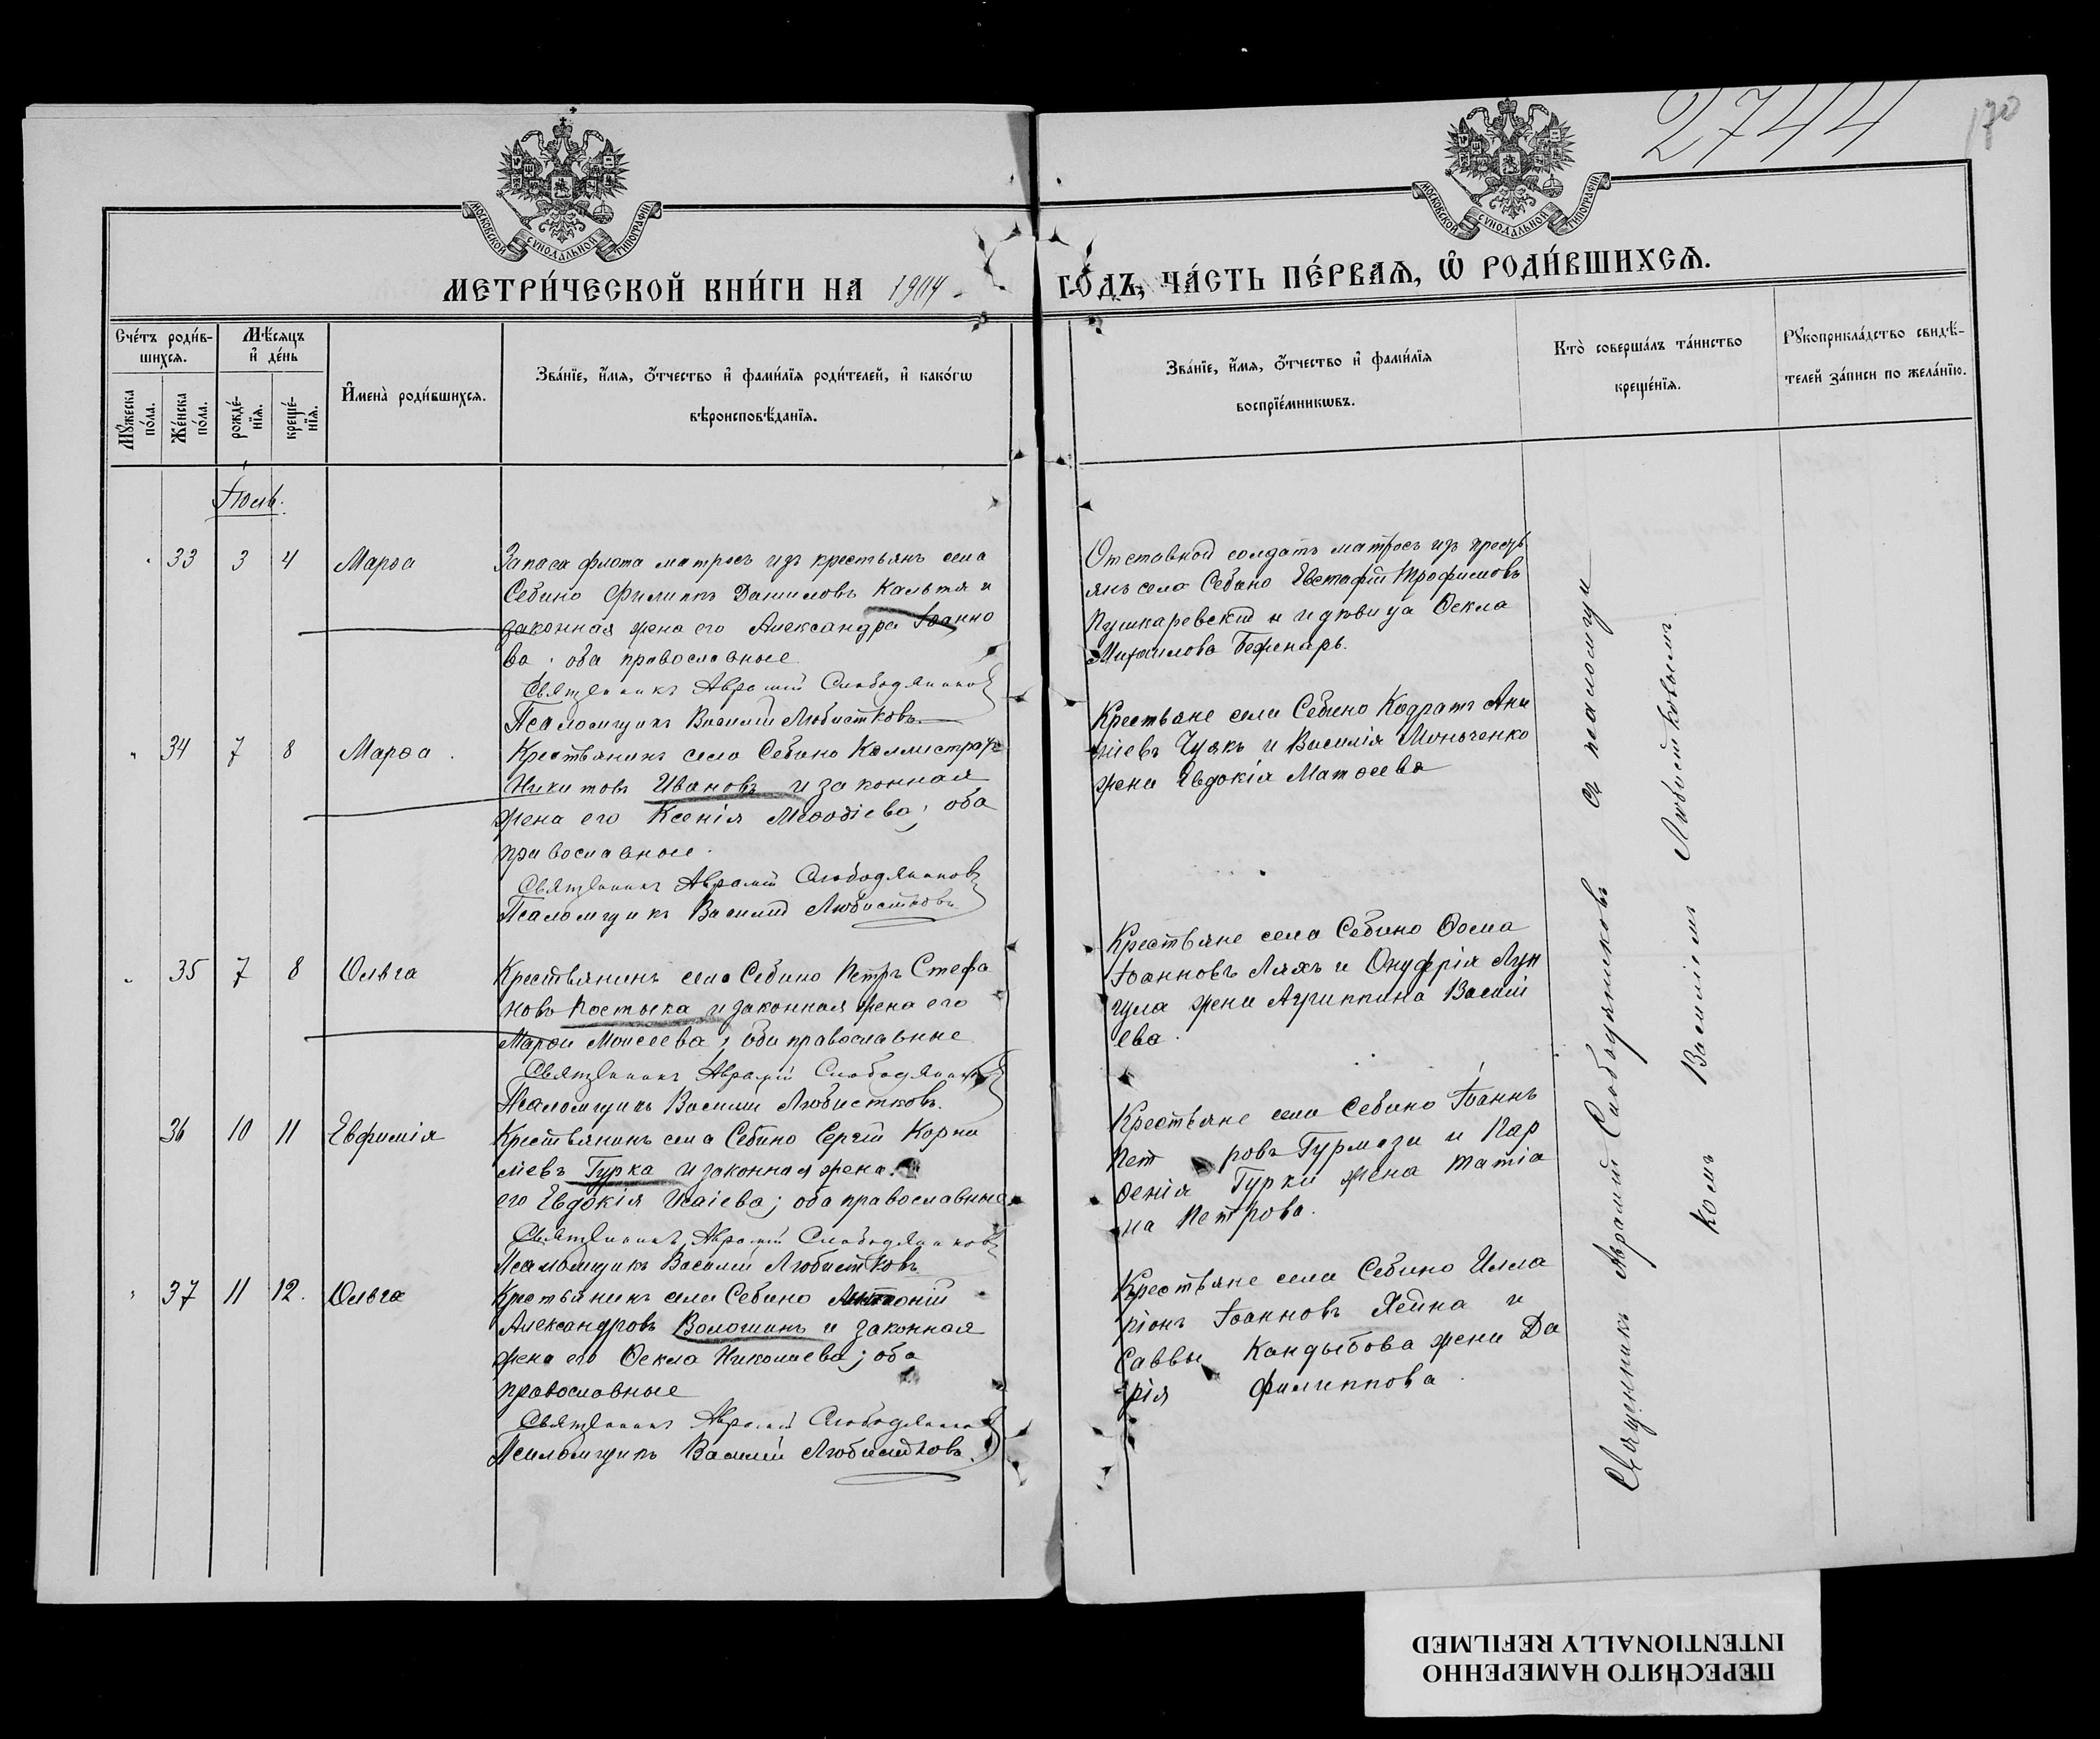 2744
170
МОСКОВСКОЙ СѴНОДАЛЬНОЙ ТИПОГРАФІИ
МОСКОВСКОЙ СѴНОДАЛЬНОЙ ТИПОГРАФІИ
МЕТРИ́ЧЕСКОЙ КНИ́ГИ НА 1904
ГО́ДЪ, ЧА́СТЬ ПЕ́РВАЯ, Ѿ РОДИ́ВШИХСЯ.
Сче́тъ роди́в-
шихся.
Мѣ́сяцъ
и҆ де́нь
Мꙋ́жеска
по́ла.
Же́нска
по́ла.
рожде́-
нїя.
креще́-
нїя.
И҆мена̀ роди́вшихся.
Зва́нїе, и҆́мя, ѻ҆́тчество и҆ фами́лїя роди́телей, и҆ како́гѡ
вѣроисповѣ́данїя.
Зва́нїе, и҆́мя, ѻ҆́тчество и҆ фами́лїя
воспрїе́мникѡвъ.
Кто̀ соверша́лъ та́инство
креще́нїя.
Рꙋкоприкла́дство свидѣ́-
телей за́писи по жела́нїю.
Іюль.
33 3 4 Марѳа
Запаса флота матросъ изъ крестьянъ села
Себино Филиппъ Даниловъ Кальтя и
законная жена его Александра Іоанно
ва; оба православные
Священникъ Аврамій Слободяников
Псаломщикъ Василій Любистковъ
Отставной солдатъ матросъ изъ кресть
янъ села Себино Евстафій Трофимовъ
Пушкаревскій и вдовица Ѳекла
Михаилова Беженарь.
34 7 8 Марѳа
Крестьянинъ села Себино Каллистратъ
Никитовъ Ивановъ и законная
жена его Ксенія Меѳодіева; оба
православные.
Священникъ Аврамій Слободяниковъ
Псаломщикъ Василій Любистковъ
Крестьяне села Себино Кодратъ Ана
ніевъ Чуякъ и Василія Моньченко
жена Евдокія Матѳеева
35 7 8 Ольга
Крестьянинъ села Себино Петръ Стефа
новъ Костыка и законная жена его
Марѳа Моисеева; оба православные
Священникъ Аврамій Слободяников
Псаломщикъ Василій Любистковъ.
Крестьяне села Себино Ѳома
Іоанновъ Ляхъ и Онуфрія Лун
гула жена Агриппина Василі
ева.
36 10 11 Евфимія
Крестьянинъ села Себино Сергій Корни
ліевъ Гурка и законная жена
его Евдокія Исаіева; оба православные
Священникъ Аврамій Слободяниковъ
Псаломщикъ Василій Любистковъ
Крестьяне села Себино Іоаннъ
Пет ровъ Гурмаза и Пар
ѳенія Гурки жена Татіа
на Петрова.
37 11 12. Ольга
Крестьянинъ села Себино Антоній
Александровъ Волошинъ и законная
жена его Ѳекла Николаева; оба
православные
Священникъ Аврамій Слободяников
Псаломщикъ Василій Любистковъ.
Крестьяне села Себино Илла
ріонъ Іоанновъ Хейна и
Саввы Кандыбова жена Да
рія Филиппова.
Священникъ Аврамій Слободяниковъ съ псаломщи
комъ Василіемъ Любистковымъ.
ПЕРЕСНЯТО НАМЕРЕННО
INTENTIONALLY REFILMED